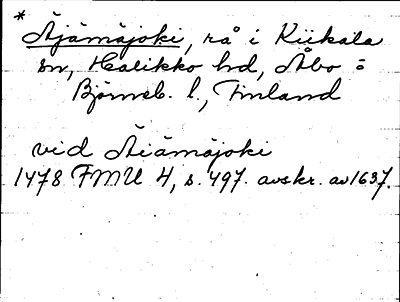 *
Äjämäjoki, rå i Kiikala
sn, Halikko hd, Åbo =
Björneb. l., Finland
vid Äiämäjoki
1478 FMU 4, s. 497. avskr. av 1637.